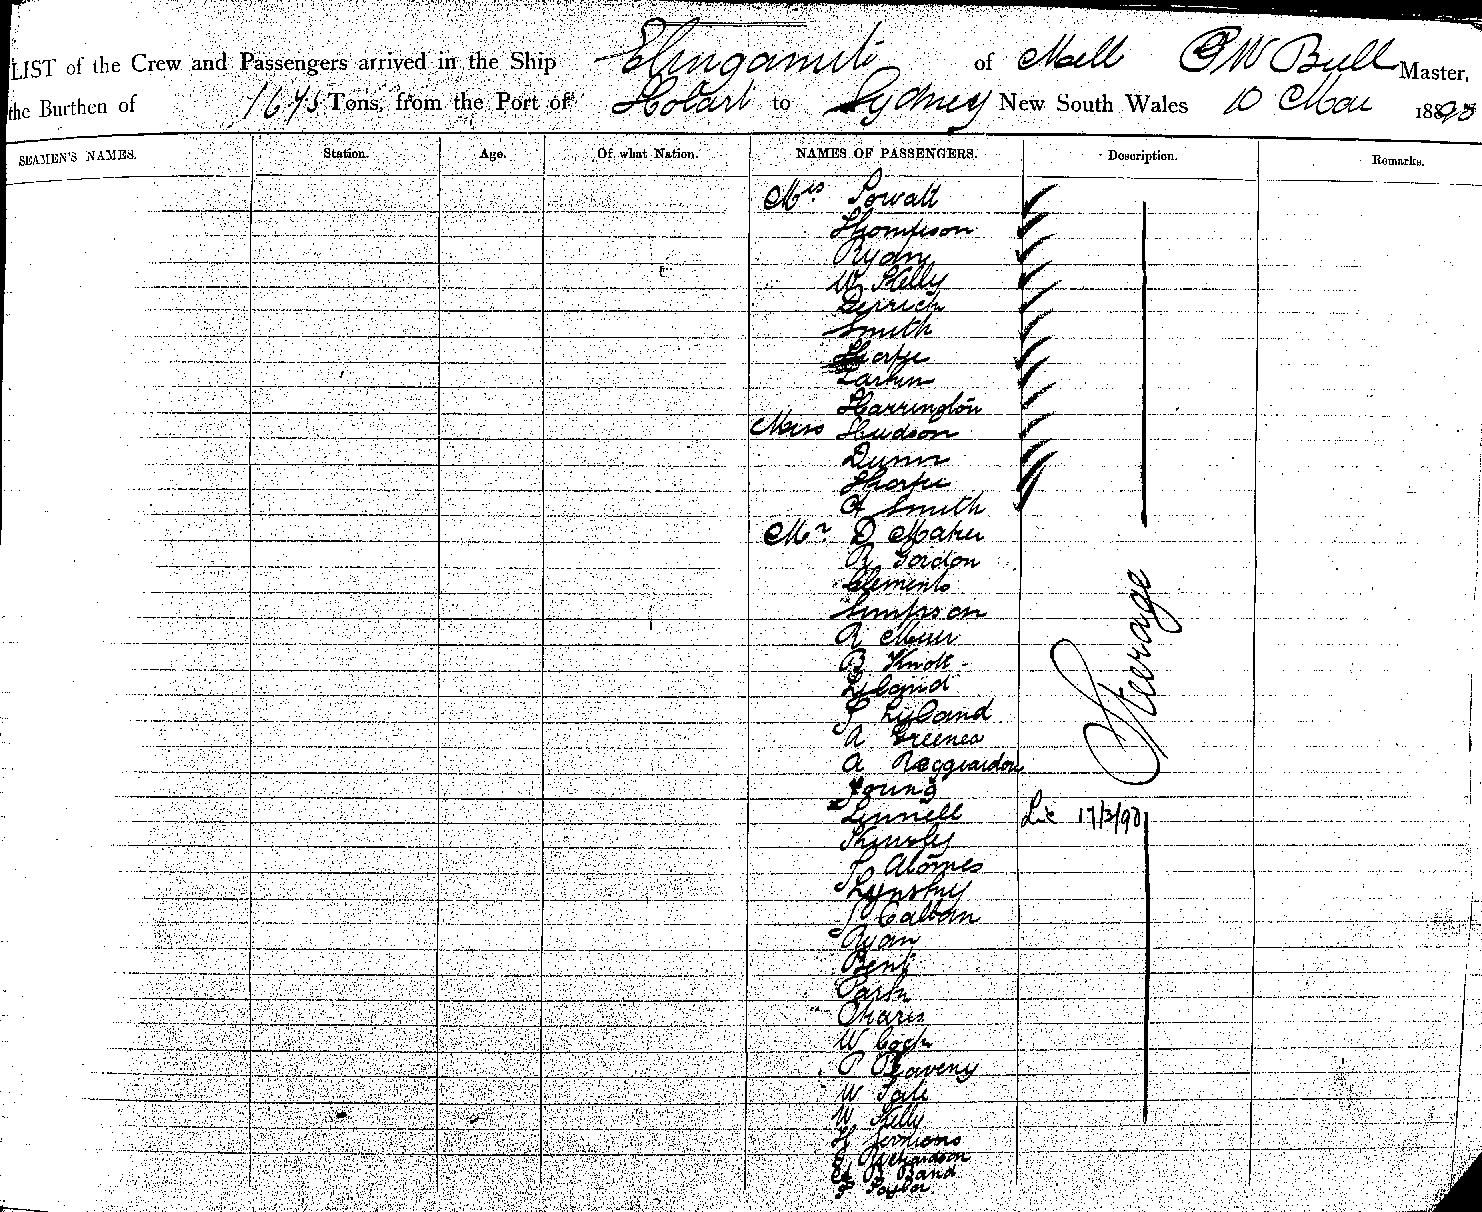 LIST of the Crew and Passengers arrived in the Ship Elingamite of Mell P W Bull Master,
the Burthen of 1675 Tons, from the Port of Hobart to Sydney New South Wales 10 Mar 1890
SEAMEN'S NAMES. Station. Age. Of what Nation. NAMES OF PASSENGERS. Description. Remarks.
Mrs Lowatt
Thompson
Ryan
W Kelly
Derrick
Smith
Thorpe
Larkin
Harrington
Miss Hudson
Dunn
Thorpe
A Smith
Mr D Maher
R Gordon
Clements
Simpson
Steerage
A Muir
B Knott
Lyband
T Lyband
A Greener
A
Young
Linnell Lic 17/3/90
Kinsley
Lynskey
Ryan
Benj
W Cock
P Reaveny
W Tate
W Kelly
H
Richardson
R Band